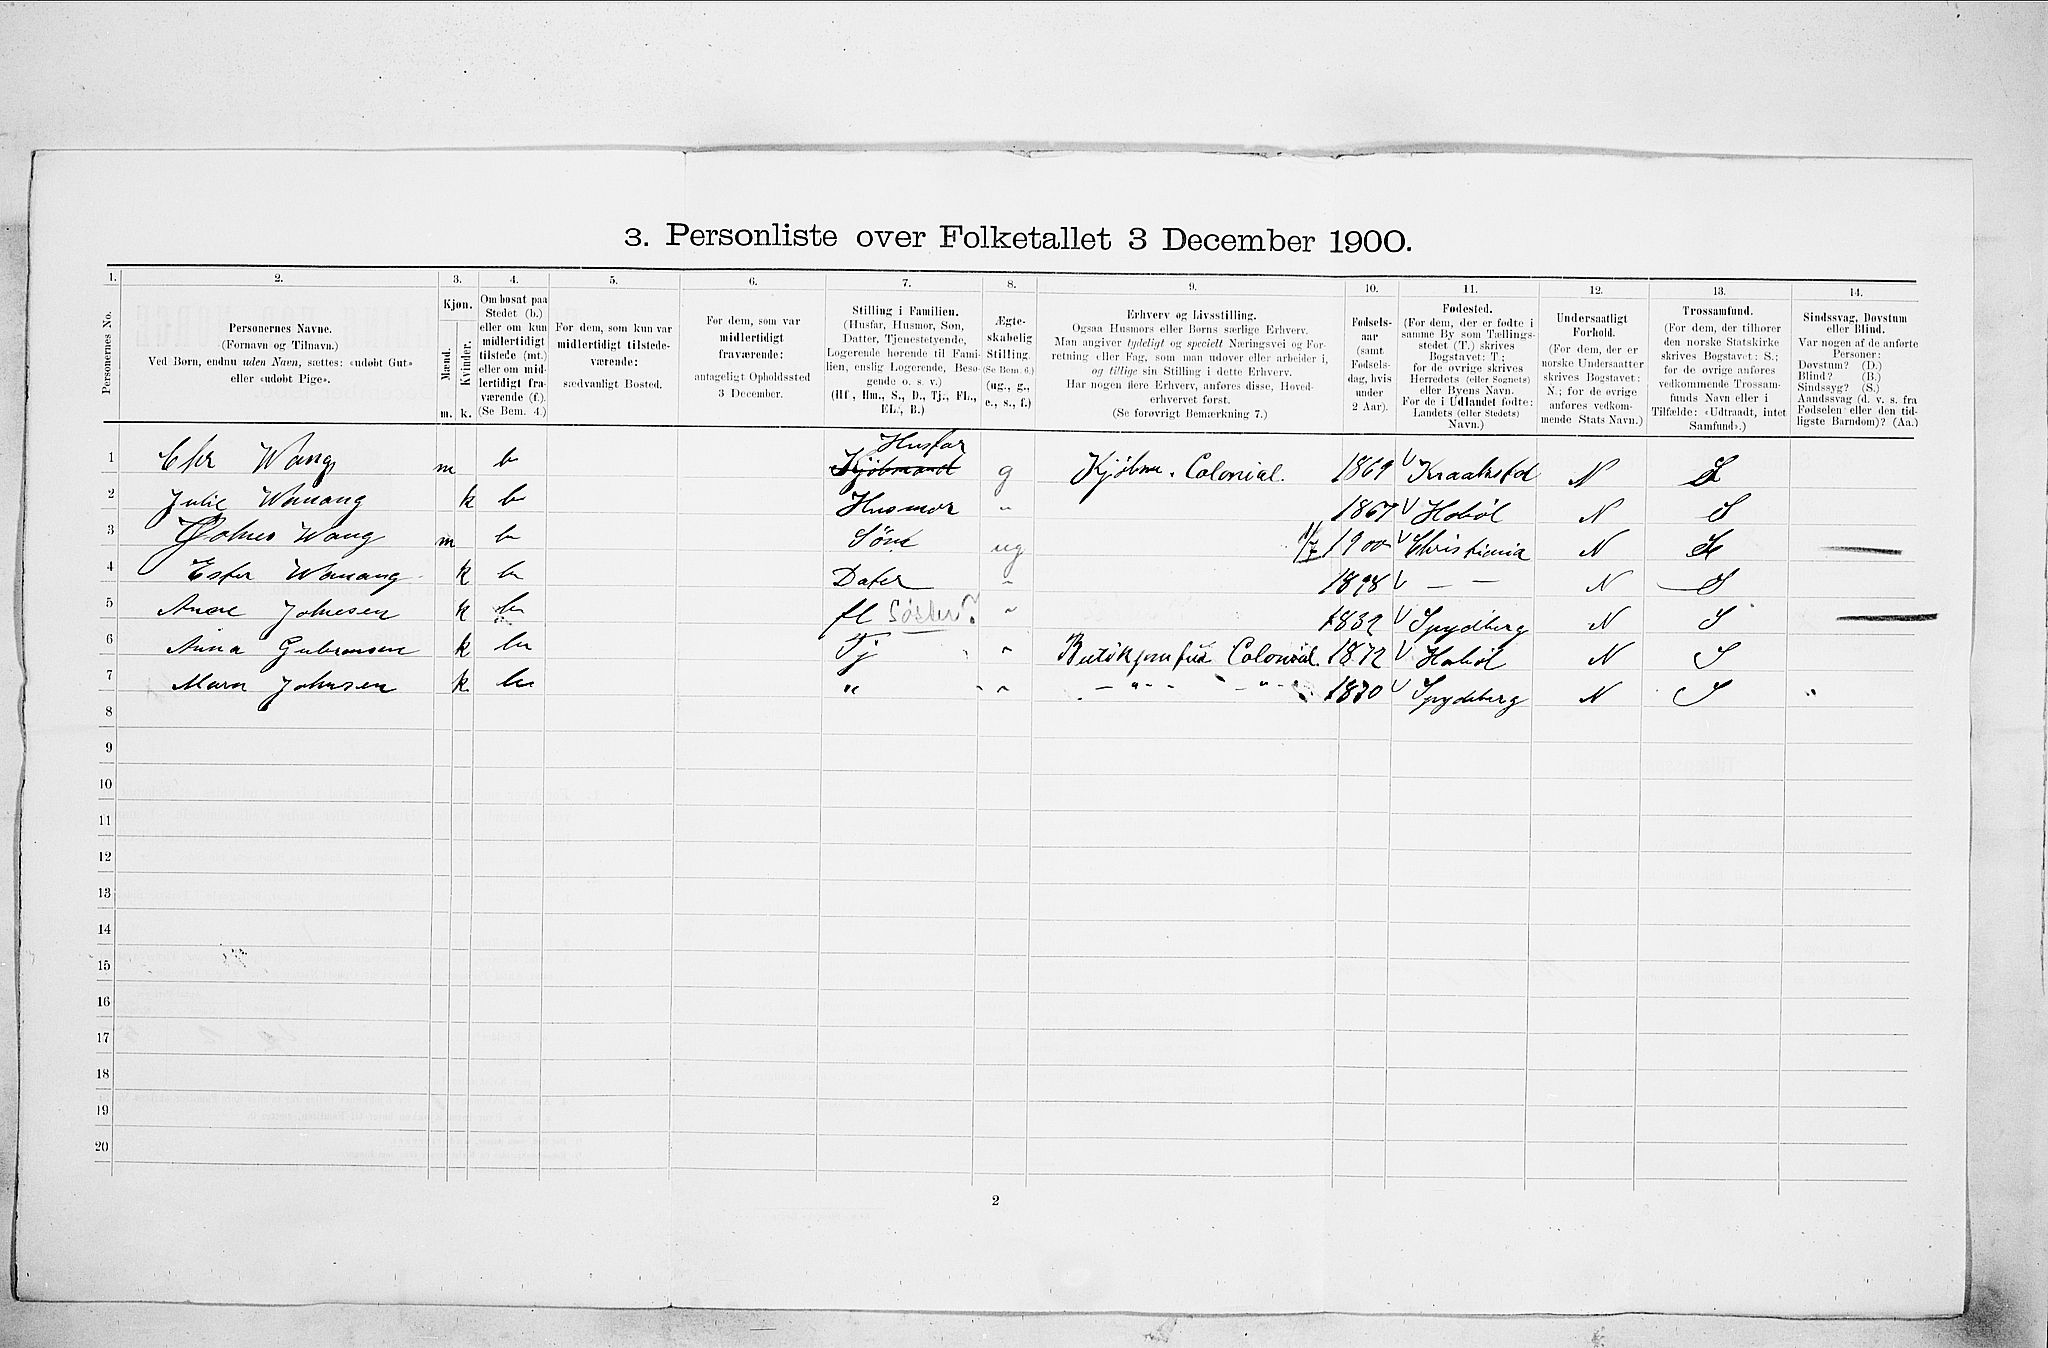 3. Personliste over Folketallet 3 December 1900.
1. 2. 3. 4. 5. 6. 7. 8. 9. 10. 11. 12. 13. 14.
Personernes No.
Personernes Navne.
(Fornavn og Tilnavn.)
Ved Børn, endnu uden Navn, sættes: «udøbt Gut»
eller «udøbt Pige».
Kjøn.
Mænd. Kvinder.
m. k.
Om bosat paa
Stedet (b.)
eller om kun
midlertidigt
tilstede (mt.)
eller om mid-
lertidigt fra-
værende (f.).
(Se Bem. 4.)
For dem, som kun var
midlertidigt tilstede-
værende:
sædvanligt Bosted.
For dem, som var
midlertidigt
fraværende:
antageligt Opholdssted
3 December.
Stilling i Familien.
(Husfar, Husmor, Søn,
Datter, Tjenestetyende,
Logerende hørende til Fami-
lien, enslig Logerende, Besø-
gende o. s. v.)
(Hf., Hm., S., D., Tj., FL.,
EL., B.)
Ægte-
skabelig
Stilling.
(Se Bem. 6.)
(ug., g.,
e., s., f.)
Erhverv og Livsstilling.
Ogsaa Husmors eller Børns særlige Erhverv.
Man angiver tydeligt og specielt Næringsvei og For-
retning eller Fag, som man udøver eller arbeider i,
og tillige sin Stilling i dette Erhverv.
Har nogen flere Erhverv, anføres disse, Hoved-
erhvervet først.
(Se forøvrigt Bemærkning 7.)
Fødsels-
aar
(samt
Fødsels-
dag, hvis
under
2 Aar).
Fødested.
(For dem, der er fødte i
samme By som Tællings-
stedet (T.) skrives
Bogstavet: T;
for de øvrige skrives
Herredets (eller Sognets)
eller Byens Navn.
For de i Udlandet fødte:
Landets (eller Stedets)
Navn.)
Undersaatligt
Forhold.
(For dem, der er
norske Undersaatter
skrives Bogstavet:
N.; for de øvrige
anføres vedkom-
mende Stats Navn.)
Trossamfund.
(For dem, der tilhører
den norske Statskirke
skrives Bogstavet: S.;
for de øvrige anføres
vedkommende Trossam-
funds Navn eller i
Tilfælde: «Udtraadt, intet
Samfund».)
Sindssvag, Døvstum
eller Blind.
Var nogen af de anførte
Personer:
Døvstum? (D.)
Blind? (B.)
Sindssyg? (S.)
Aandssvag (d. v. s. fra
Fødselen eller den tid-
ligste Barndom)? (Aa.)
1 Chr Wang m b Husfar Kjøbmand g Kjøbm. Colonial. 1869 Kraakstad N S
2 Julie Wang k b Husmor " 1867 Hobøl N S
3 Johnes Wang m b Søn ug 11/7 1900 Christiania N S
4 Ester Wang k b Dater " 1898 — — N S
5 Anne Johnesen k b fl Søster? " 1832 Spydberg N S
6 Anna Gulbransen k b Tj " Butikjomfru Colonial. 1872 Hobøl N S
7 Maren Johnsen k b " " — " — — " — 1870 Spydeberg N S
8
9
10
11
12
13
14
15
16
17
18
19
20
2